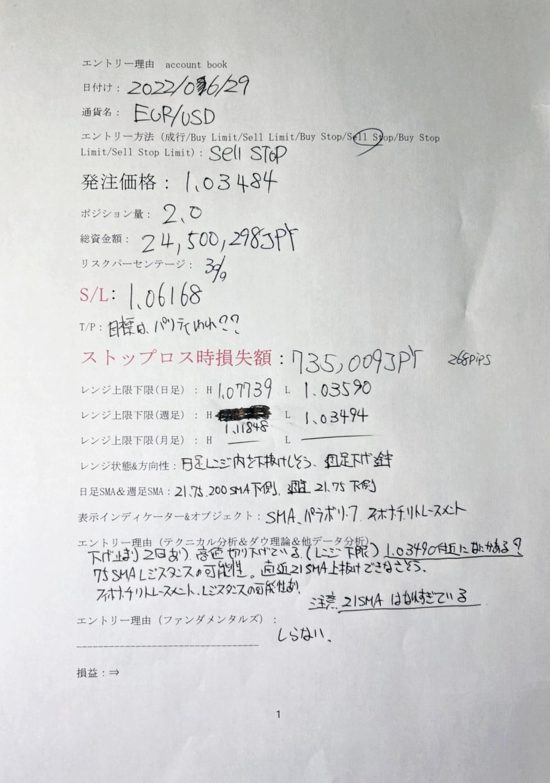 エントリー理由 account book
日付け： 2022/06/29
通貨名： EUR/USD
エントリー方法（成行/Buy Limit/Sell Limit/Buy Stop/Sell Stop/Buy Stop
Limit/Sell Stop Limit）： sell stop
発注価格： 1.03484
ポジション量： 2.0
総資金額： 24,500,298JPY
リスクパーセンテージ： 3%
S/L： 1.06168
T/P： 目標は、パリティわれ??
ストップロス時損失額：735,009JPY 268pips
レンジ上限下限(日足) ： H 1.07739 L 1.03590
レンジ上限下限(週足) ： H 1.11848 L 1.03494
レンジ上限下限(月足) ： H — L —
レンジ状態&方向性： 日足レンジ内を下抜けしそう、週足下げ
日足SMA＆週足SMA： 21.75.200SMA下側、週足21.75下側
表示インディケーター&オブジェクト： SMA、パラボリック、フィボナチリトレースメント
エントリー理由（テクニカル分析＆ダウ理論&他データ分析）
下げ止まり2回あり、高値切り下げている（レンジ下限）1.03490付近になにかある?
75SMAレジスタンスの可能性。直近21SMA上抜けできなさそう。
フィボナチリトレースメント、レジスタンスの可能性あり
注意 21SMAはなれすぎている
エントリー理由（ファンダメンタルズ）：
しらない、
損益：⇒
1